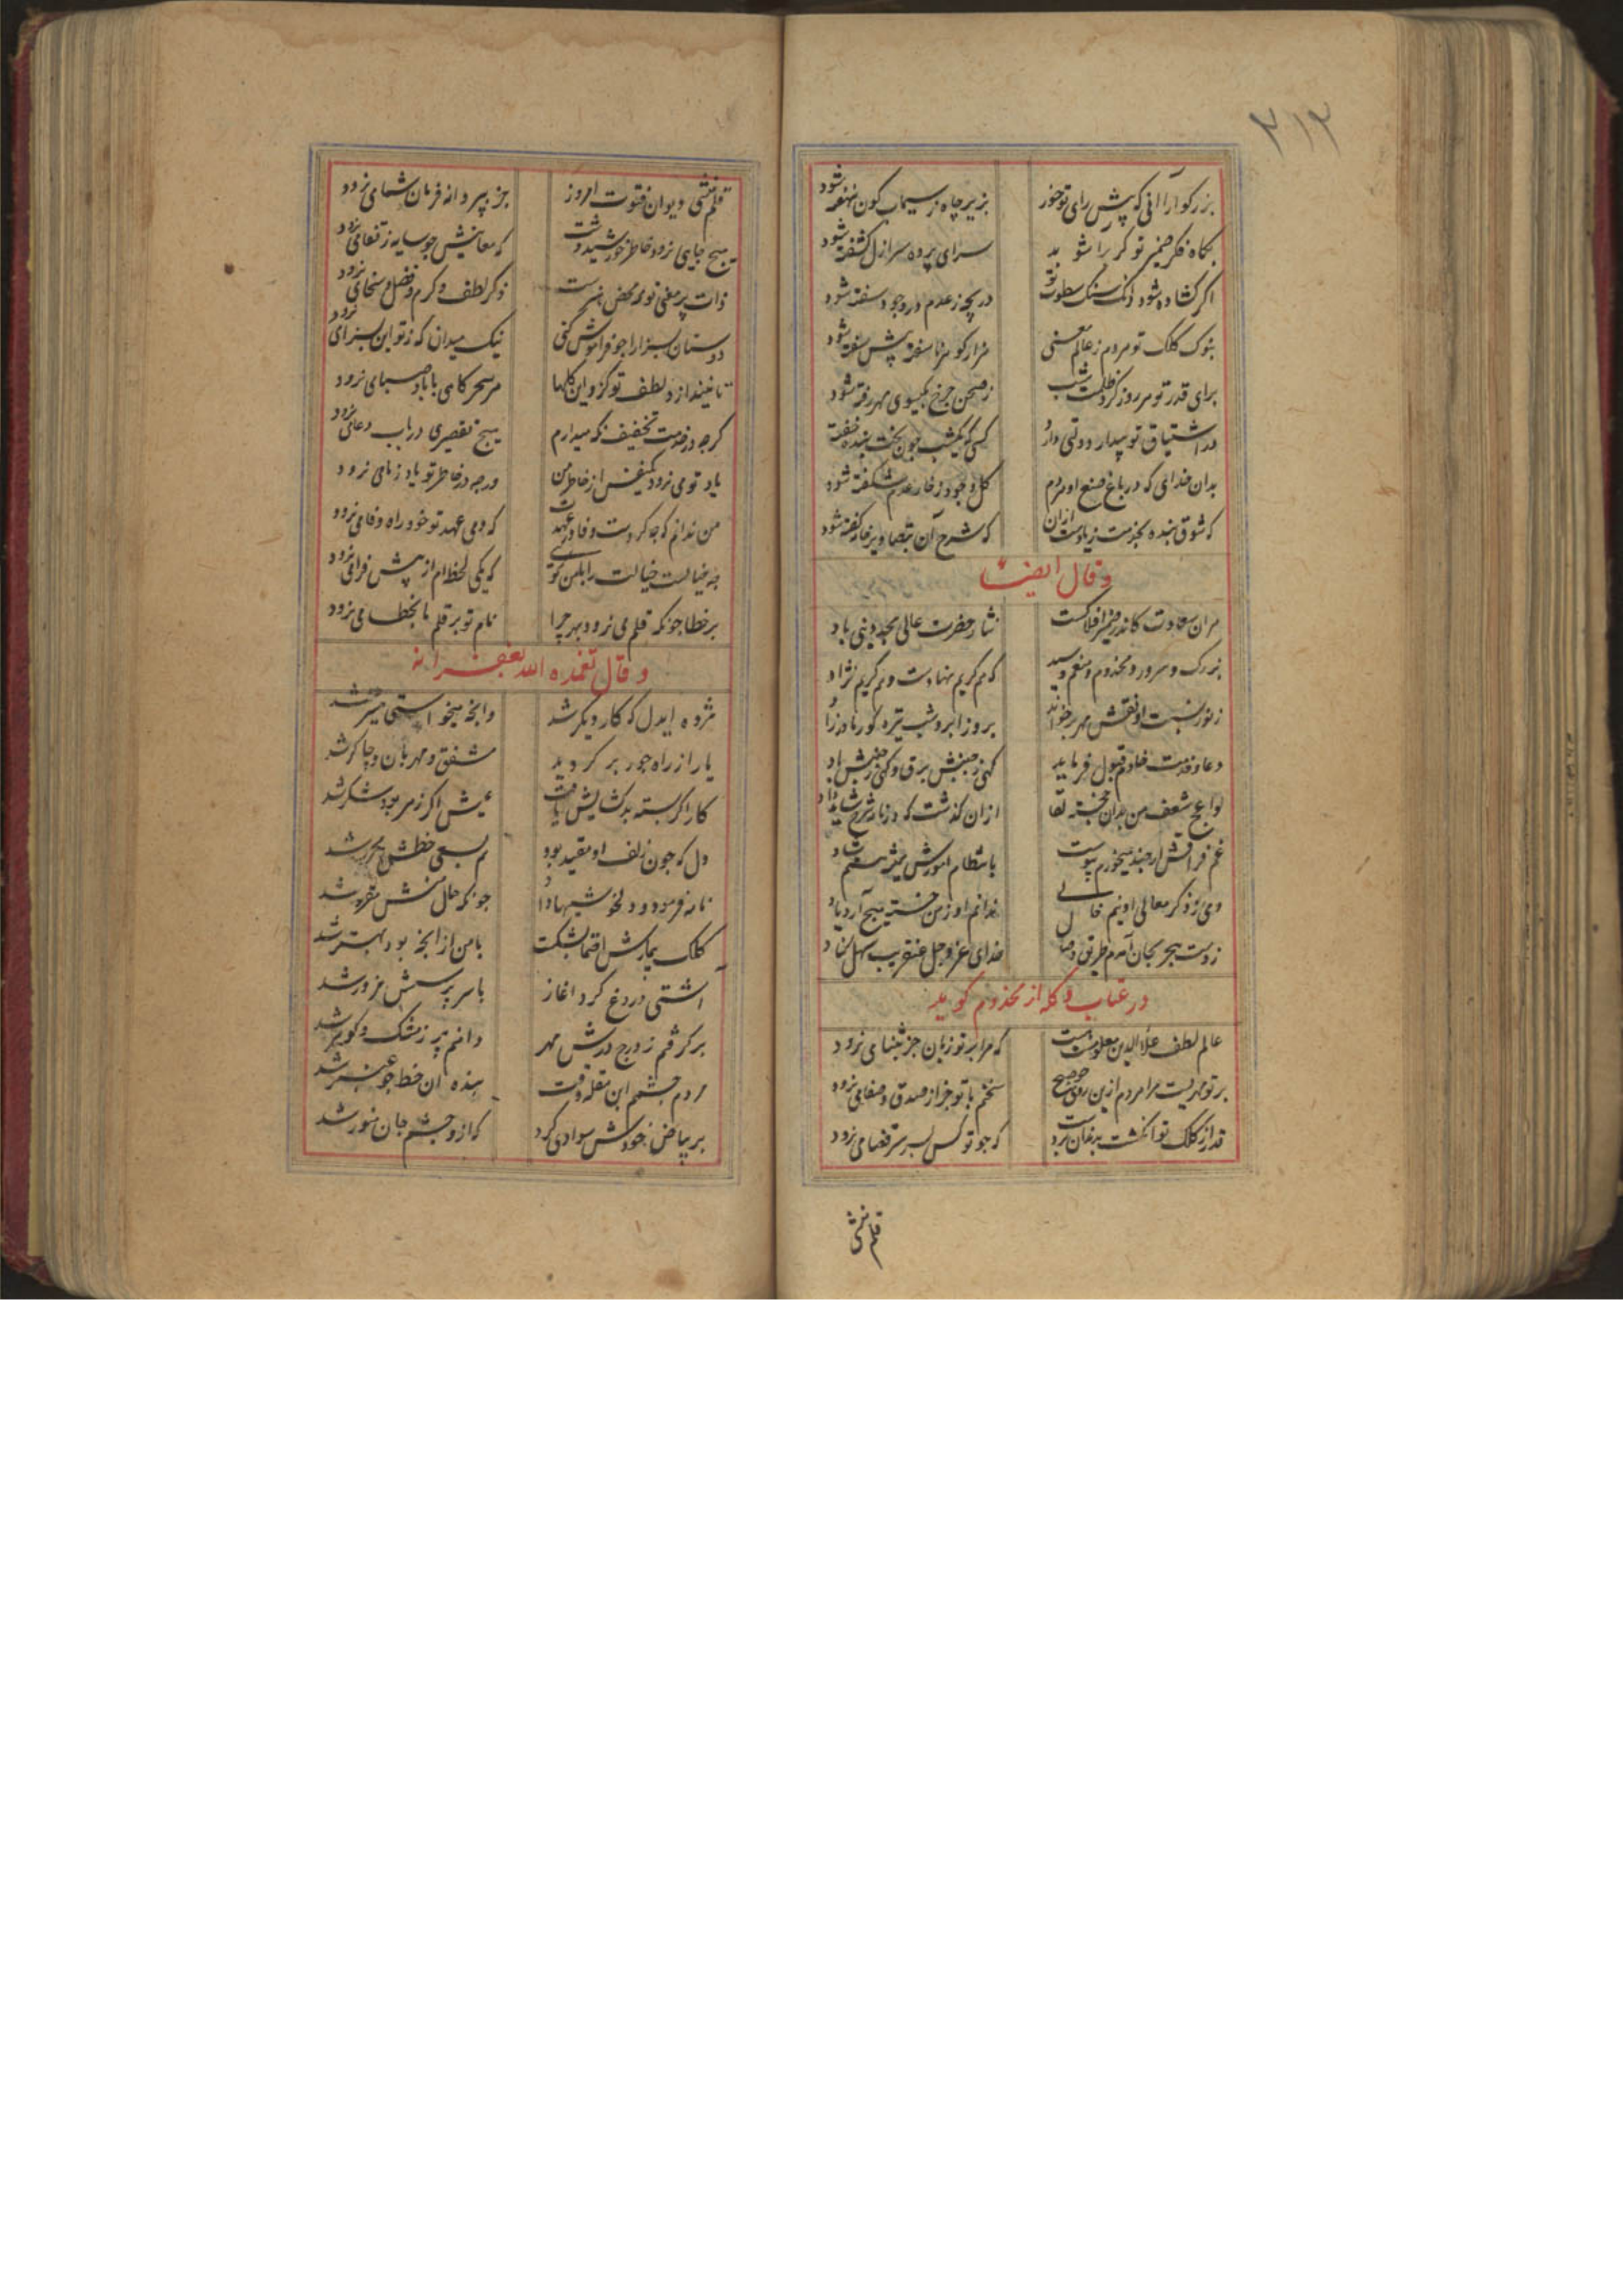 ۳۱۳
بزرکوارا آنی که پیش رای تو خور بزیر چاه سیماب کون نهفته شود
بکاه فکر ضمیر تو کر را شو بد سرای پرده سر ازل کشفته شود
اکر کشاده شود سنک سطوت تو دریچه ز عدم در وجود سفته شود
بنوک کلک تو مردم ز عالم معنی هزار کوهر ناسفته پیش سفته شود
برای قدر تو هر روز کرد ظلمت شب ز صحن چرخ بکیسوی مهر رفته شود
در اشتیاق تو بیدار دولتی دارد کسی که یکشب چون بخت بنده خفته
بدان خدای که در باغ صنع او مردم کل وجود ز خار عدم شکفته شود
که شوق بنده بخدمت زیادتست از ان که شرح آن بتصاویر خامه کفته شود
و قال ایضا
هران سعادت کاندر ضمیر افلاکست نثار حضرت عالی مجد دینی باد
بزرک و سرور و مخدوم و منعم و سید که هم کریم نهادست و هم کریم نژاد
ز نور نسبت او نقش مهر برخواند بروز ابر و شب تیره کور مادرزاد
دعا و خدمت خادم قبول فرماید کهی ز جنبش برق و کهی ز جنبش باد
لواعج شعف من بدان خجسته لقا ازان کذشت که در نامه شرح شاید داد
غم فراقش هرچند میخورم پیوست بانتظام امورش همیشه هستم شاد
وی ز ذکر معالی او نیم خالی ندانم او ز من خسته هیچ آرد یاد
ز دست هجر بجان آمدم طریق وصال خدای عز و جل عنقریب سهل کناد
در عتاب و کله از مخدوم کوید
عالم لطف علاء الدین معلومت هست که مرا بر تو زبان جز بثنا می نرود
بر تو مهریست مرا مردم ازین روی چو صبح سخنم با تو جز از صدق و صفا می نرود
قدر از کلک تو انکشت بدندان برد که چو تو کس بسر سر قضا می نرود
قلم منشی
قلم منشی دیوان فتوت امروز جز بپروانه فرمان شما می نرود
هیچ جایی نرود خاطر خورشید وشت که معانیش چو سایه ز قفا می نرود
ذات پر معنی تو همه محض هنرست ذکر لطف و کرم و فضل و سخا می نرود
دوستان بسزا را چو فراموش کنی نیک میدان که ز تو این بسزا می نرود
تا نیندازد لطف تو کزو این کلها هر سحر کاهی با باد صبا می نرود
کرچه در خدمت تخفیف نکه میدارم هیچ تقصیری در باب دعا می نرود
یاد تو می نرود یکنفس از خاطر من ورچه در خاطر تو یاد ز ما می نرود
من ندانم که چه کردست وفا در عهدت که دمی عهد تو خود راه وفا می نرود
چه خیالست خیالت را با من تو بکوی که یکی لحظه ام از پیش فرا می نرود
بر خطا چونکه قلم می نرود بهر چرا نام تو بر قلم ما بخطا می نرود
و قال تغمده الله بغفرانه
مژده ای دل که کار دیکر شد وانچه میخواستی میسر شد
یار از راه جور بر کردید مشفق و مهربان و چاکر شد
کار اکر بسته بد کشایش یافت عیش اکر زهر بود شکر شد
دل که چون زلف او مقید بود هم بسعی خطش محرر شد
نامه فرمود و دلخوشیها داد چونکه حال منش مقرر شد
کلک بیمارش اقتما بشکست با من از آنچه بود بهتر شد
آشتی دروغ کرد اغاز با سر پرسش مزور شد
بر کرفتم ز درج درش مهر دانم پر ز مشک و کوهر شد
مردم چشم ابن مقله وقت بنده آن خط چو عنبر شد
بر بیاض خودش سوادی کرد که ازو چشم جان منور شد